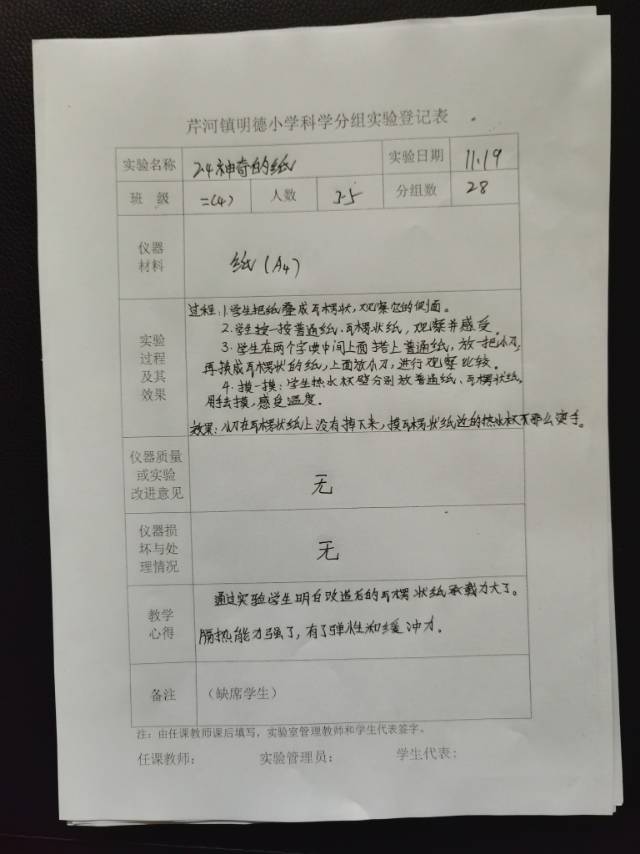 芹河镇明德小学科学分组实验登记表
实验名称 2.4神奇的纸 实验日期 11.19
班 级 二(4) 人数 35 分组数 28
仪器
材料
纸(A4)
实验
过程
及其
效果
过程:1.学生把纸叠成瓦楞状,观察它的侧面。
2.学生按一按普通纸、瓦楞状纸,观察并感受。
3.学生在两个字典中间上面搭上普通纸,放一把小刀,
再换成瓦楞状的纸,上面放小刀,进行观察比较。
4.摸一摸:学生热水杯壁分别放普通纸、瓦楞状纸,
用手去摸,感受温度。
效果:小刀在瓦楞状纸上没有掉下来,摸瓦楞状纸边的热水杯不那么烫手。
仪器质量
或实验
改进意见
无
仪器损
坏与处
理情况
无
教学
心得
通过实验学生明白改造后的瓦楞状纸承载力大了。
隔热能力强了,有了弹性和缓冲力。
备注 (缺席学生)
注:由任课教师课后填写,实验室管理教师和学生代表签字。
任课教师: 实验管理员: 学生代表: